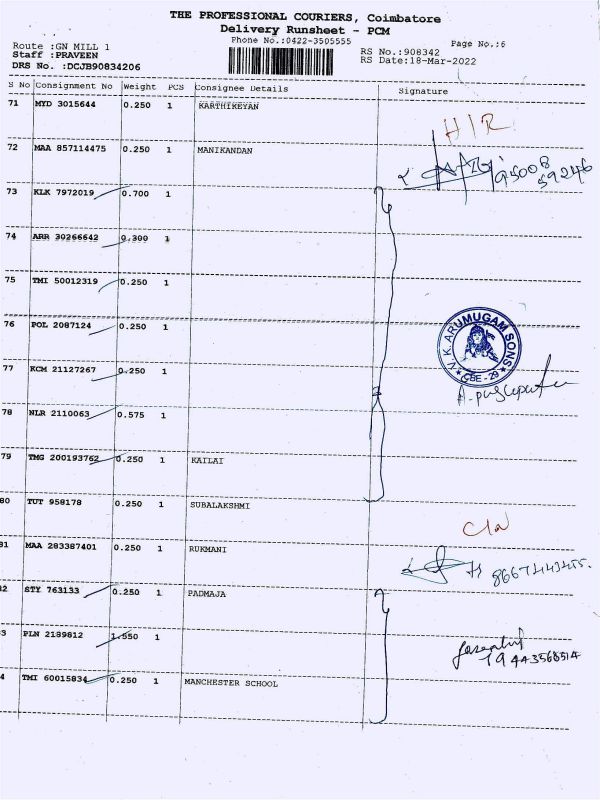 THE PROFESSIONAL COURIERS, Coimbatore
Delivery Runsheet - PCM
Phone No.:0422-3505555
Page No.:6
Route :GN MILL 1
Staff :PRAVEEN
DRS No. :DCJB90834206
RS No.:908342
RS Date:18-Mar-2022
S No Consignment No Weight PCS Consignee Details Signature
71 MYD 3015644 0.250 1 KARTHIKEYAN
H/R
72 MAA 857114475 0.250 1 MANIKANDAN
95008
59246
73 KLK 7972019 0.700 1
74 ARR 30266642 0.300 1
75 TMI 50012319 0.250 1
76 POL 2087124 0.250 1
V.K. ARUMUGAM SONS
CBE - 29
77 KCM 21127267 0.250 1
78 NLR 2110063 0.575 1
79 TMG 200193762 0.250 1 KAILAI
80 TUT 958178 0.250 1 SUBALAKSHMI
81 MAA 283387401 0.250 1 RUKMANI
2 STY 763133 0.250 1 PADMAJA
3 PLN 2189812 1.550 1
9443568514
4 TMI 60015834 0.250 1 MANCHESTER SCHOOL